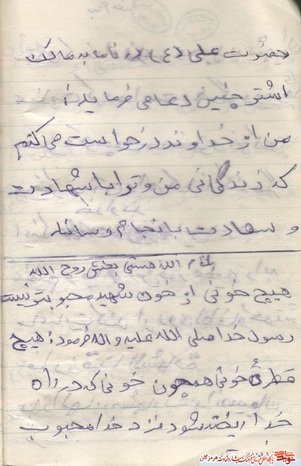 حضرت علی (ع) در نامه به مالک
اشتر چنین دعا می فرماید:
من از خداوند درخواست می کنم
که زندگانی من و تو را با شهادت
و سعادت بانجام رساند
الله هستی بخش روح الله
هیچ خونی از خون شهید محبوبتر نیست
رسول خدا صلی الله علیه واله فرمود: هیچ
قطرهٔ خونی همچون خونی که در راه
خدا ریخته شود نزد خدا محبوب